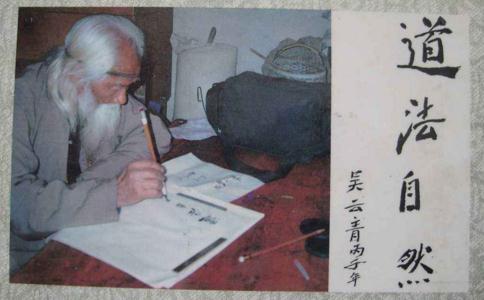 道法自然
吴云青丙子年